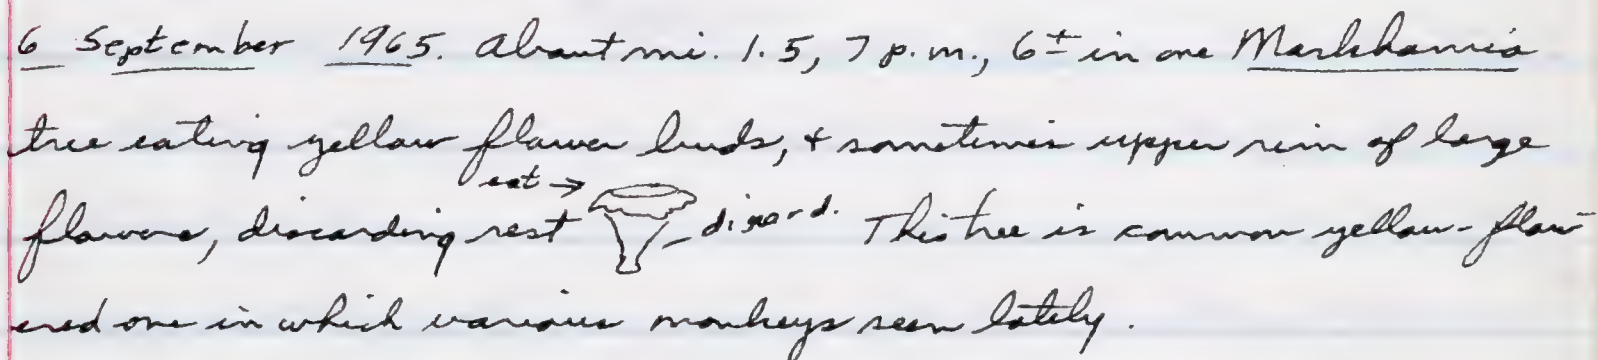 6 September 1965. About mi. 1.5, 7 p.m., 6± in one Markhamia
tree eating yellow flower buds, + sometimes upper rim of large
eat →
flowers, discarding rest discard. This tree is common yellow-flow-
ered one in which various monkeys seen lately.